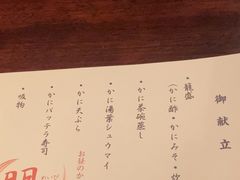 御献立
・籠盛
(かに酢・かにみそ・
・かに茶碗蒸し
・かに湯葉シュウマイ
・かに天ぷら
・かにバッテラ寿司
・吸物